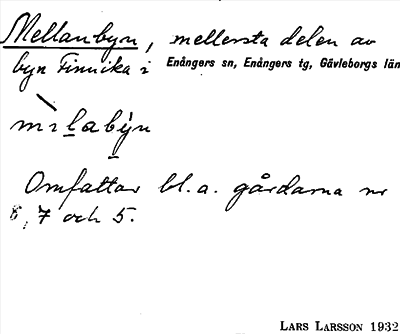 Mellanbyn, mellersta delen av
byn Finnika i Enångers sn, Enångers tg, Gävleborgs län
mılabýn
Omfattar bl.a. gårdarna nr
6, 7 och 5.
LARS LARSSON 1932